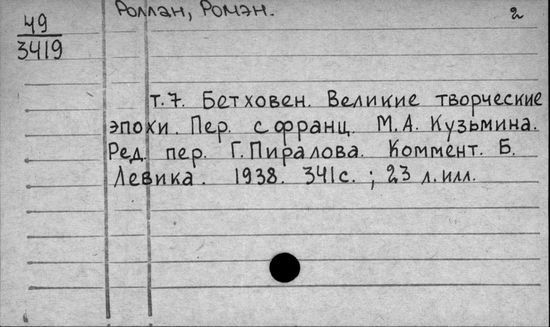 49
3419
Роллан, Ромэн.
2
т.7. Бетховен. Великие творческие
эпохи. Пер. с франц. М.А. Кузьмина.
Ред. пер. Г.Пиралова. Коммент. Б.
Левика. 1938. 341с. ; 23 л.илл.